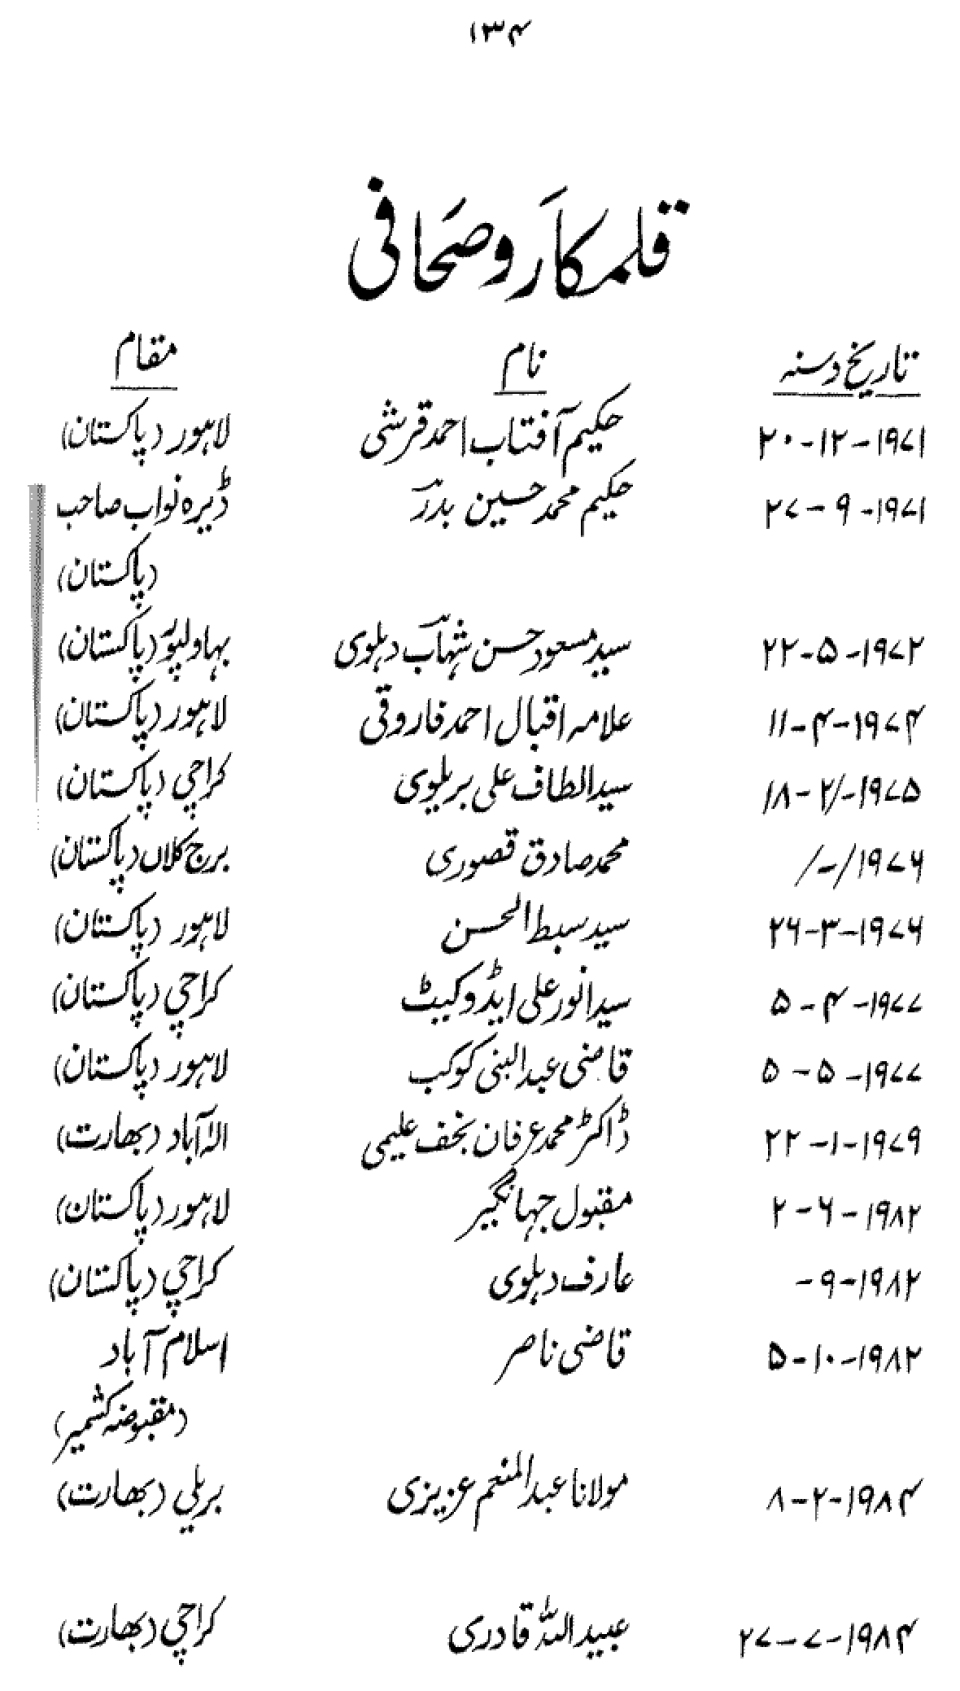 ۱۳۴
قلمکار و صحافی
تاریخ و سنہ نام مقام
۲۰-۱۲-۱۹۷۱ حکیم آفتاب احمد قرشی لاہور (پاکستان)
۲۷-۹-۱۹۷۱ حکیم محمد حسین بدرؔ ڈیرہ نواب صاحب
(پاکستان)
۲۲-۵-۱۹۷۲ سید مسعود حسن شہابؔ دہلوی بہاولپور (پاکستان)
۱۱-۴-۱۹۷۴ علامہ اقبال احمد فاروقی لاہور (پاکستان)
۱۸-۲/-۱۹۷۵ سید الطاف علی بریلوی کراچی (پاکستان)
/-/۱۹۷۶ محمد صادق قصوری برج کلاں (پاکستان)
۲۶-۳-۱۹۷۶ سید سبط الحسن لاہور (پاکستان)
۵-۴-۱۹۷۷ سید انور علی ایڈوکیٹ کراچی (پاکستان)
۵-۵-۱۹۷۷ قاضی عبدالنبی کوکب لاہور (پاکستان)
۲۲-۱-۱۹۷۹ ڈاکٹر محمد عرفان نجف علیمی الہٰ آباد (بھارت)
۲-۶-۱۹۸۲ مقبول جہانگیر لاہور (پاکستان)
-۹-۱۹۸۲ عارف دہلوی کراچی (پاکستان)
۵-۱۰-۱۹۸۲ قاضی ناصر اسلام آباد
(مقبوضہ کشمیر)
۸-۲-۱۹۸۴ مولانا عبدالمنعم عزیزی بریلی (بھارت)
۲۷-۷-۱۹۸۴ عبیداللہ قادری کراچی (بھارت)